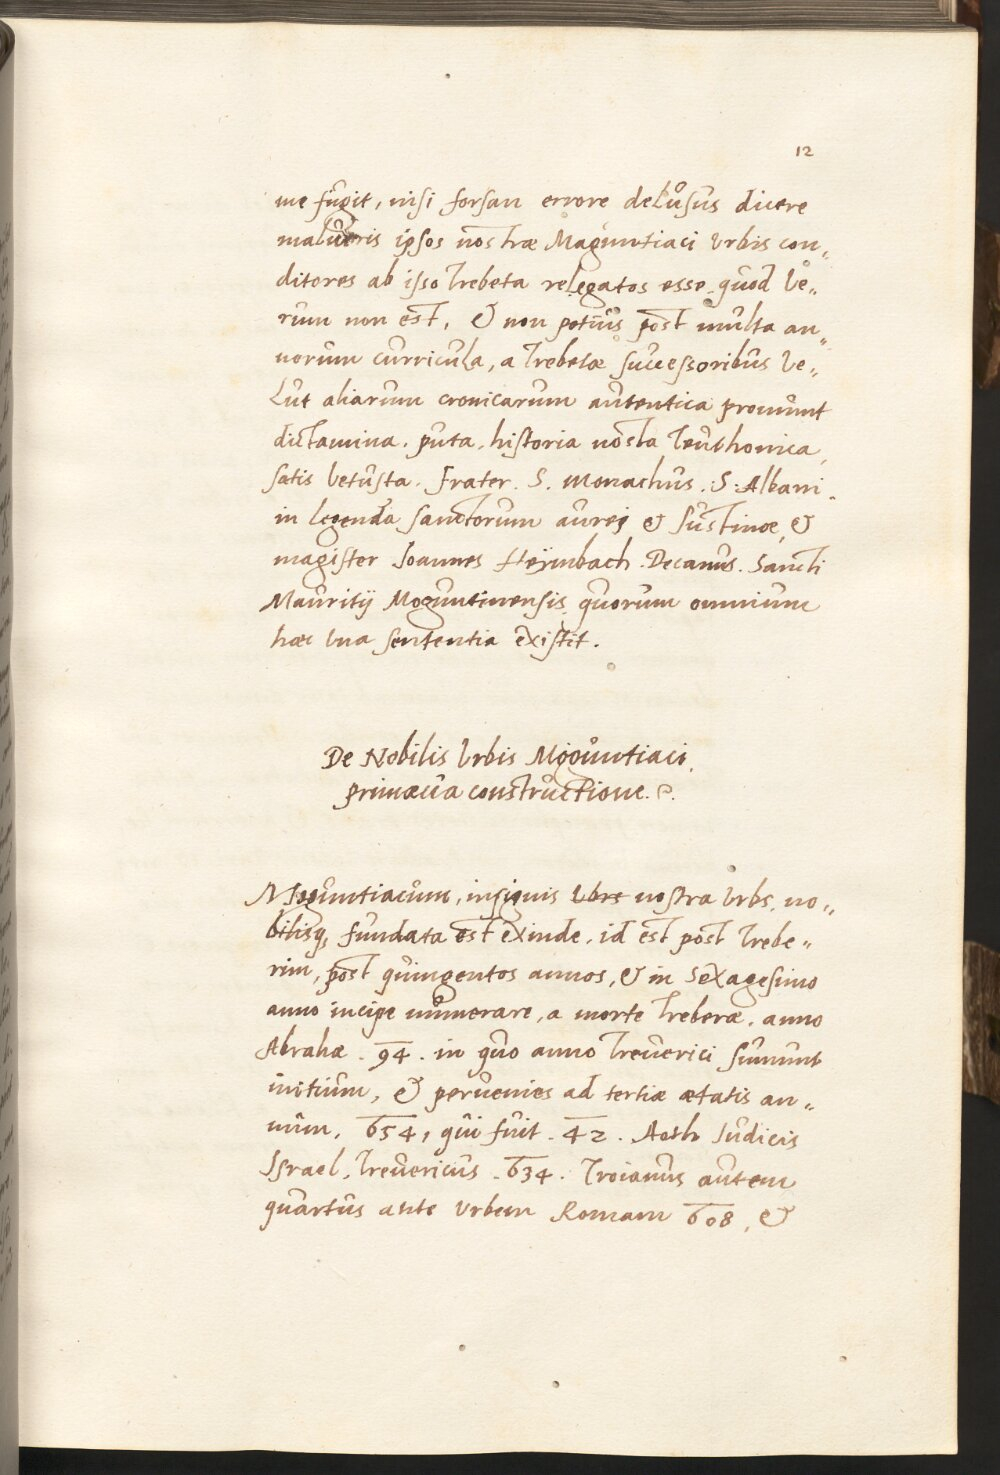 12
me fugit, nisi forsan errore delusus dicere
malueris ipsos nostræ Maguntiaci Vrbis con„
ditores ab ipso Trebeta relegatos esse, quod Ve„
rum non est, & non potius post multa an„
norum curricula, a Trebetæ successoribus Ve„
lut aliarum cronicarum autentica promunt
dictamina. puta. historia nosta Teuthonica,
satis Vetusta. Frater. S. Monachus. S: Albani.
in legenda sanctorum aurej & Justinæ, &
magister Joannes Heÿmbach. Decanus. Sancti
Mauritij Moguntinensis, quorum omnium
hæc Vna sententia existit.
De Nobilis Vrbis Moguntiaci,
primæua constructione.
Moguntiacum, insignis Vbre nostra Vrbs, no„
bilisq, fundata est exinde, id est post Trebe„
rim, post quingentos annos, & in sexagesimo
anno incipe numerare, a morte Treberæ. anno
Abrahæ. 94. in quo anno Treuerici sumunt
initium, & peruenies ad tertiæ ætatis an„
num, 654, qui fuit. 42. Aoth Judicis
Israel, Treuericus. 634. Troianus autem
quartus ante Vrbem Romam 608, &